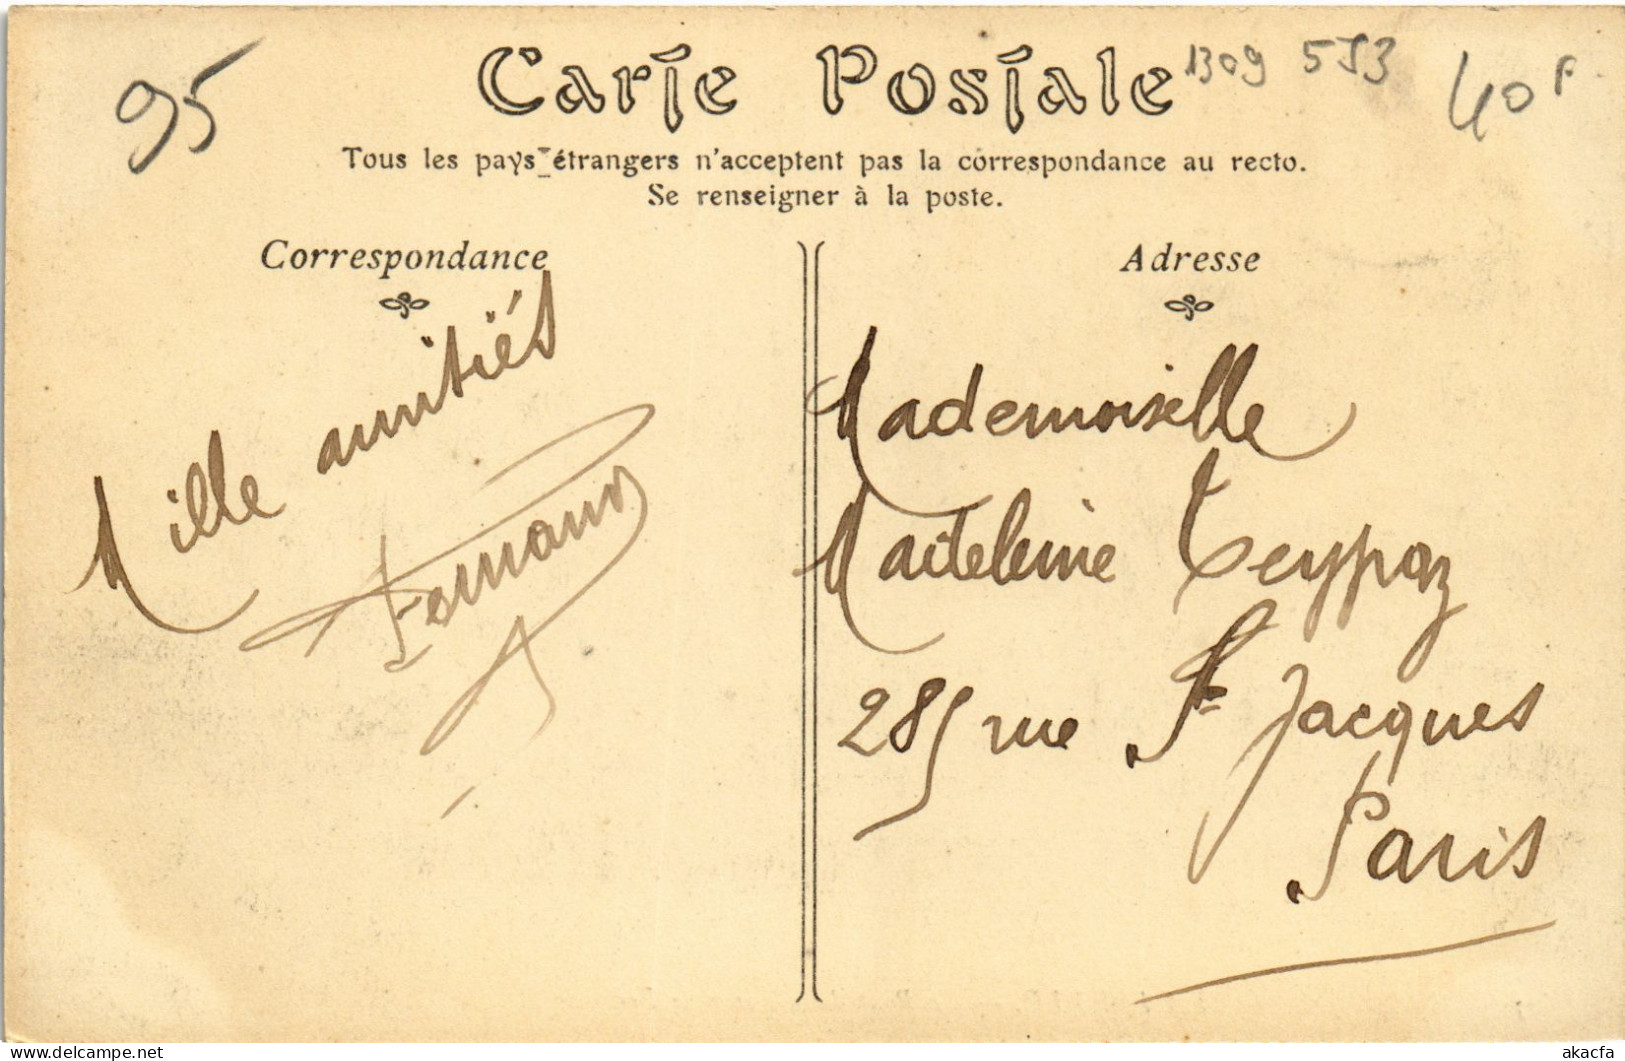 95
Carte Postale
1309 553
40F
Tous les pays étrangers n'acceptent pas la correspondance au recto.
Se renseigner à la poste.
Correspondance
Mille amitiés
Fernand
Adresse
Mademoiselle
Madeleine Teypaz
285 rue St Jacques
Paris
akacfa